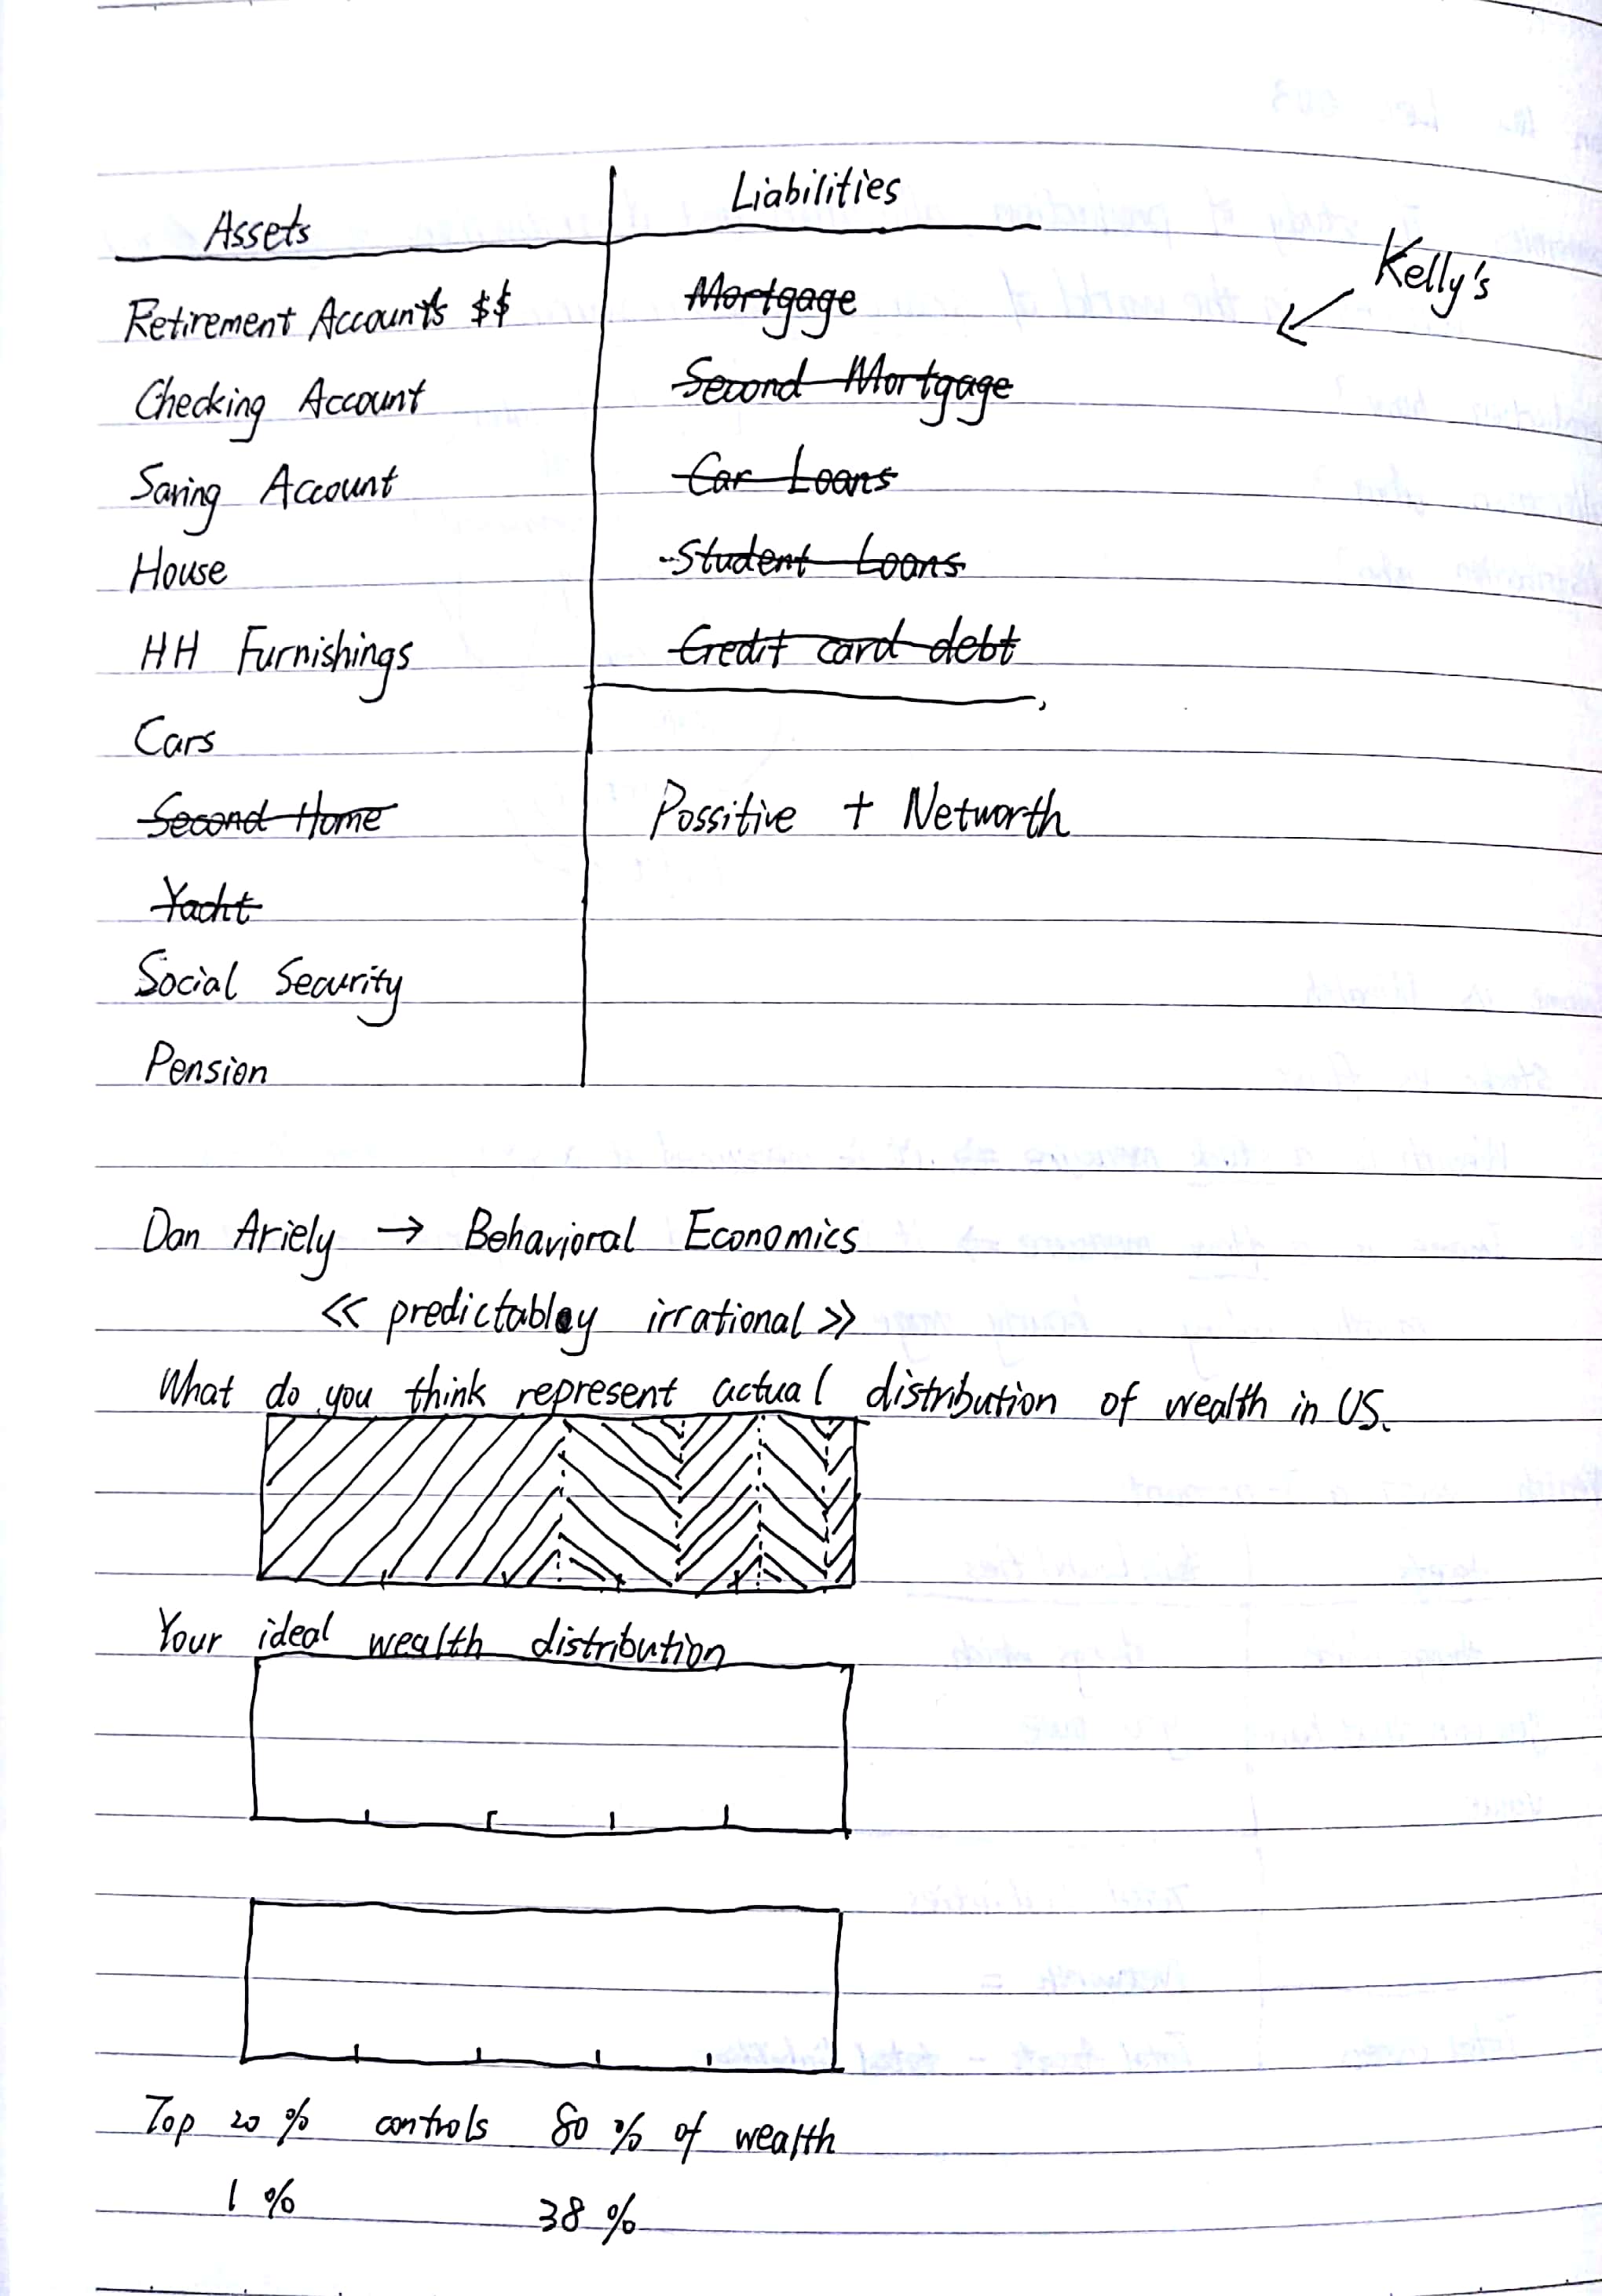 Assets | Liabilities
Kelly's
Retirement Accounts $$ | ~~Mortgage~~
Checking Account | ~~Second Mortgage~~
Saving Account | ~~Car Loans~~
House | ~~Student Loans~~
HH Furnishings | ~~Credit card debt~~
Cars
~~Second Home~~ | Possitive + Networth
~~Yacht~~
Social Security
Pension
Dan Ariely → Behavioral Economics
<< predictabley irrational >>
What do you think represent actual distribution of wealth in US.
Your ideal wealth distribution
Top 20 % controls 80 % of wealth
1 % 38 %